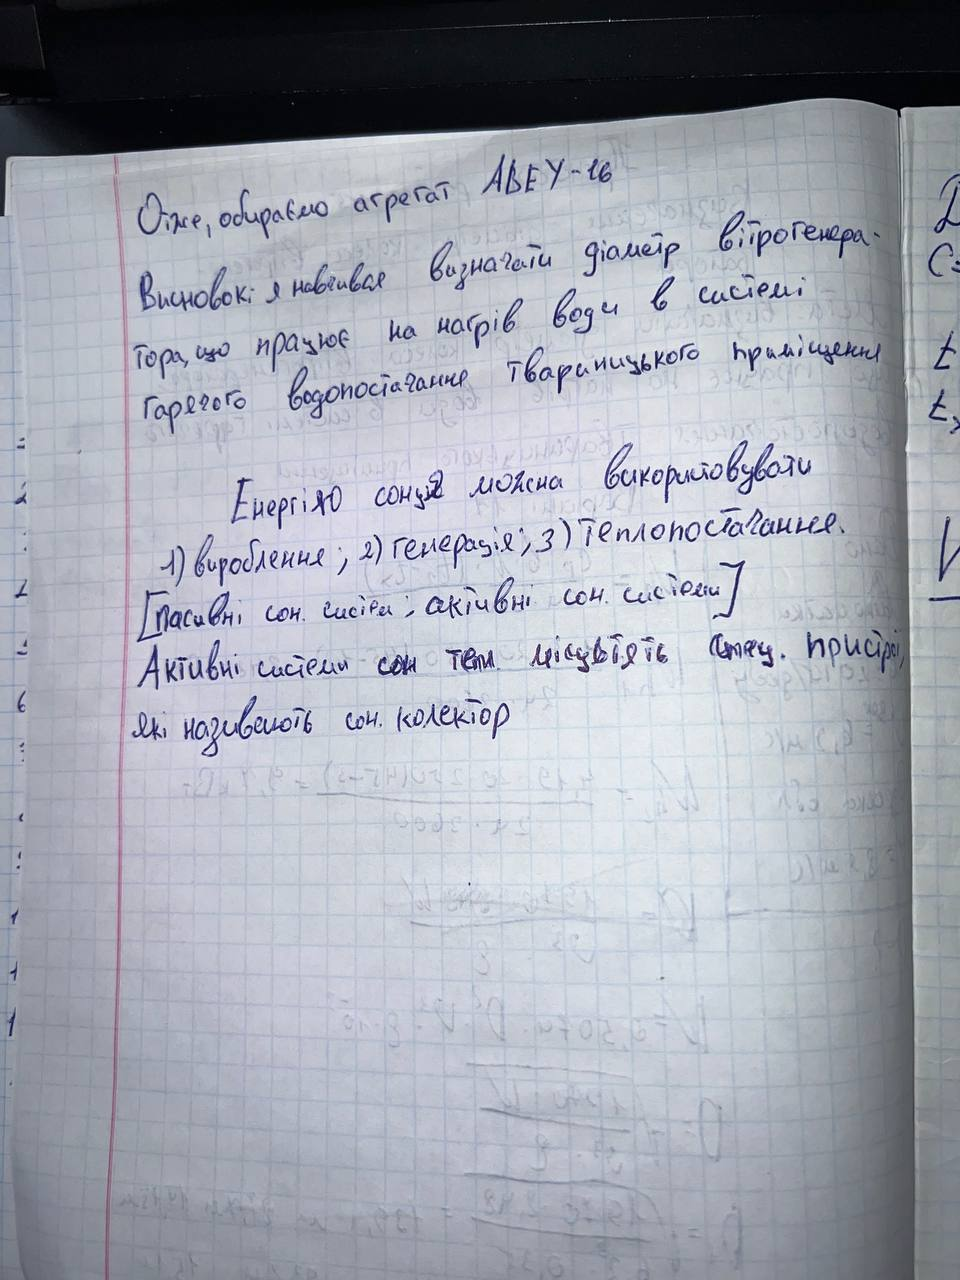 Отже, обираємо агрегат АВЕУ-16
Висновок: я навчився визначати діаметр вітрогенера-
тора, що працює на нагрів води в системі
гарячого водопостачання тваринницького приміщення
Енергію сонця можна використовувати
1) вироблення; 2) генерація; 3) теплопостачання.
[пасивні сон. систем; активні сон. системи]
Активні системи сон теп місцять спец. пристрої,
які називають сон. колектор